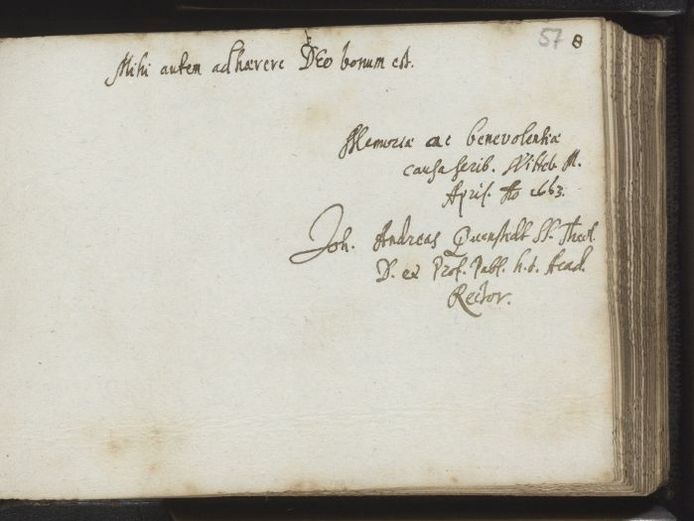 57 8
Mihi autem adhærere DEO bonum est.
Memoriæ ac benevolentiæ
causa scrib. Witteb. M.
April. Ao 1663.
Joh. Andreas Quenstedt SS. Theol.
D. et Prof. Publ. h.t. Acad.
Rector.